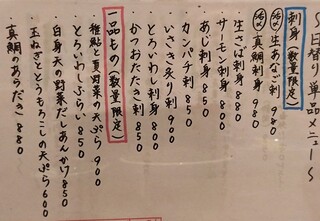 ～日替り単品メニュー～
刺身(数量限定)
活〆生あなご刺 980
活〆真鯛刺身 980
・生さば刺身 880
・サーモン刺身 800
・あじ刺身 850
・カンパチ刺 850
・いさき炙り刺 900
・とろいわし刺身 800
・かつおたたき刺 850
一品もの(数量限定)
・稚鮎と夏野菜の天ぷら 900
・とろいわしぶらい 850
・白身天の野菜だしあんかけ 850
・玉ねぎととうもろこしの天ぷら 600
・真鯛のあらだき 880